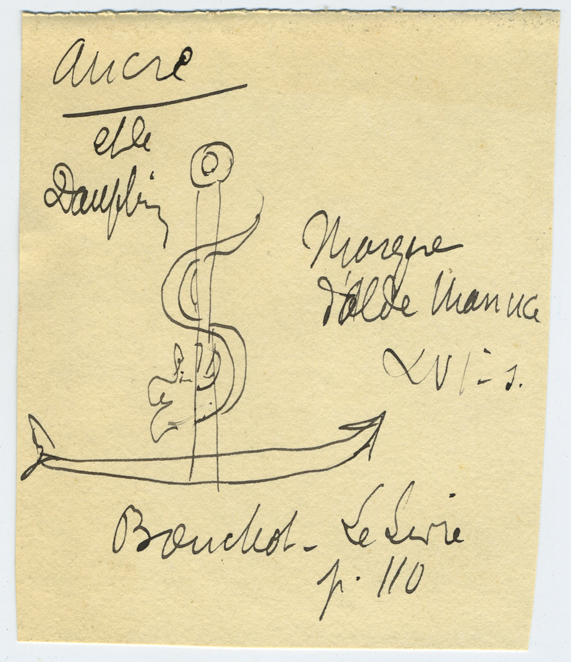 Ancre
et le
Dauphin
Marque
d'Alde Manuce
XVI - s.
Bouchot - Le Livre
p. 110